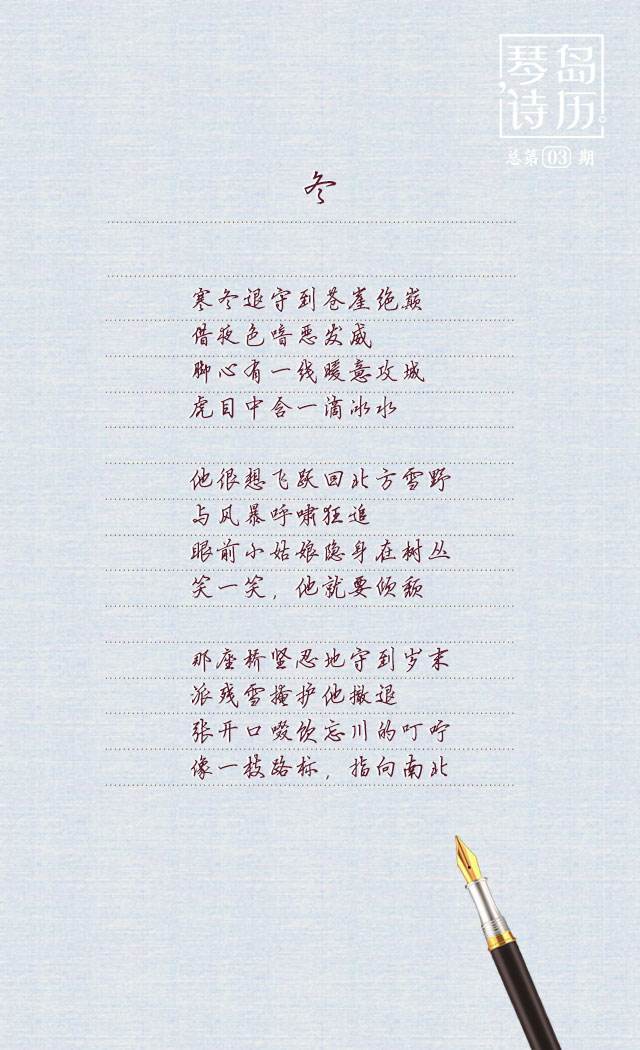 琴岛
诗历。
总第03期
冬
寒冬退守到苍崖绝巅
借夜色喑恶发威
脚心有一线暖意攻城
虎目中含一滴冰水
他很想飞跃回北方雪野
与风暴呼啸狂追
眼前小姑娘隐身在树丛
笑一笑，他就要倾颓
那座桥坚忍地守到岁末
派残雪掩护他撤退
张开口啜饮忘川的叮咛
像一枝路标，指向南北